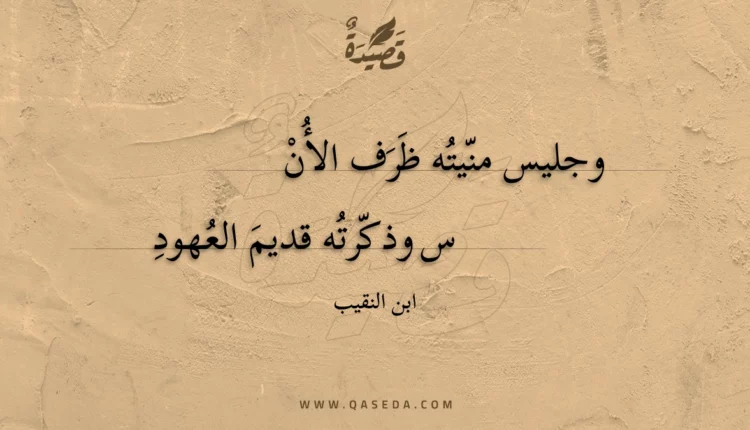 قَصِيْدَةٌ
وجليس منّيتُه ظَرَف الأُنْ
س وذكّرتُه قديمَ العُهودِ
ابن النقيب
WWW.QASEDA.COM